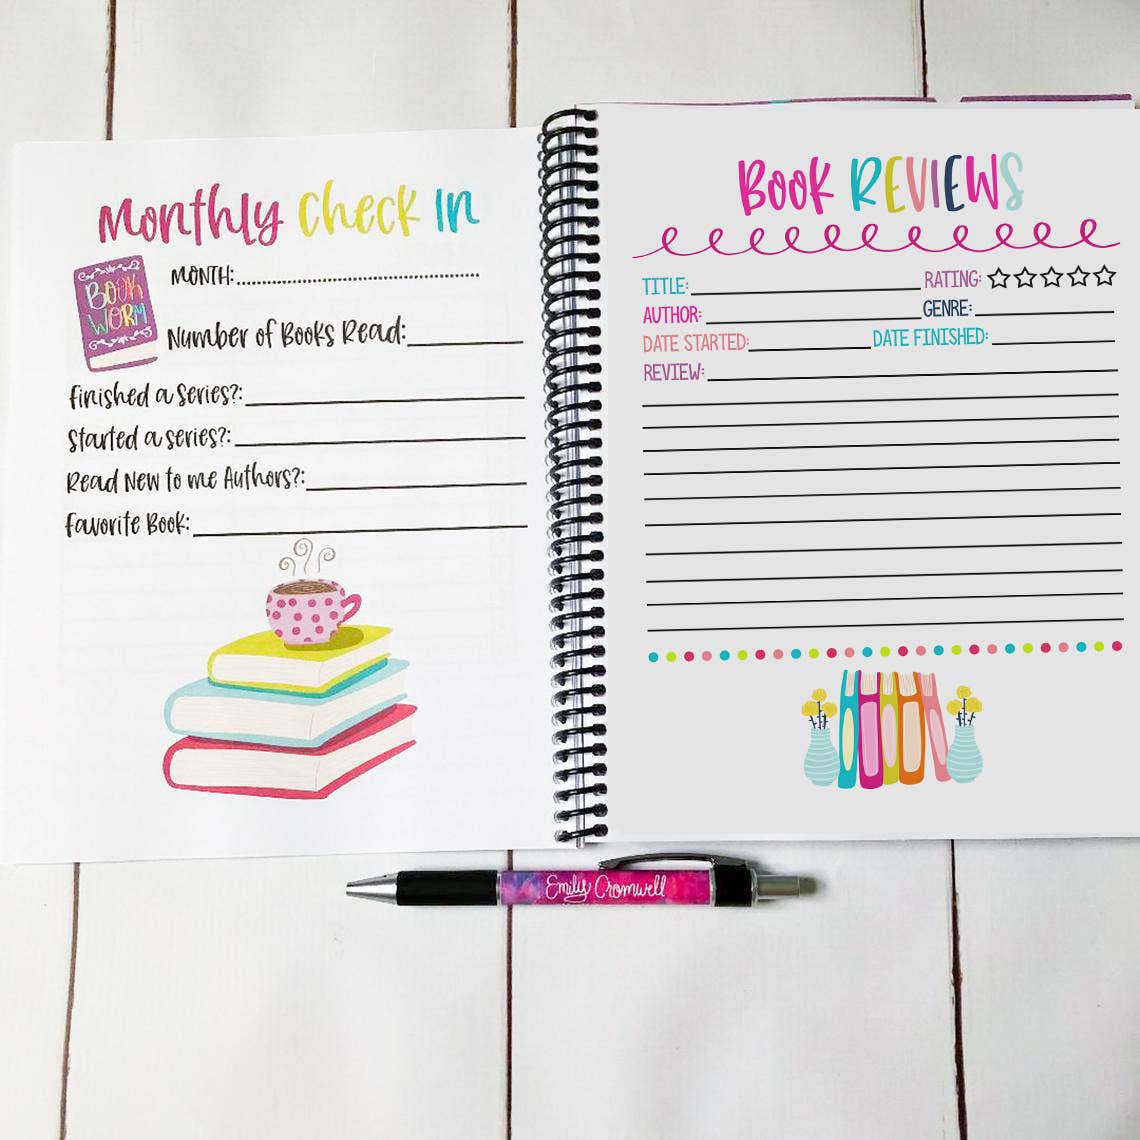 Monthly Check In
BOOK
WORM
MONTH:
Number of Books Read:
Finished a Series?:
Started a series?:
Read New to me Authors?:
Favorite Book:
Book REVIEWS
TITLE: RATING:
AUTHOR: GENRE:
DATE STARTED: DATE FINISHED:
REVIEW:
Emily Cromwell